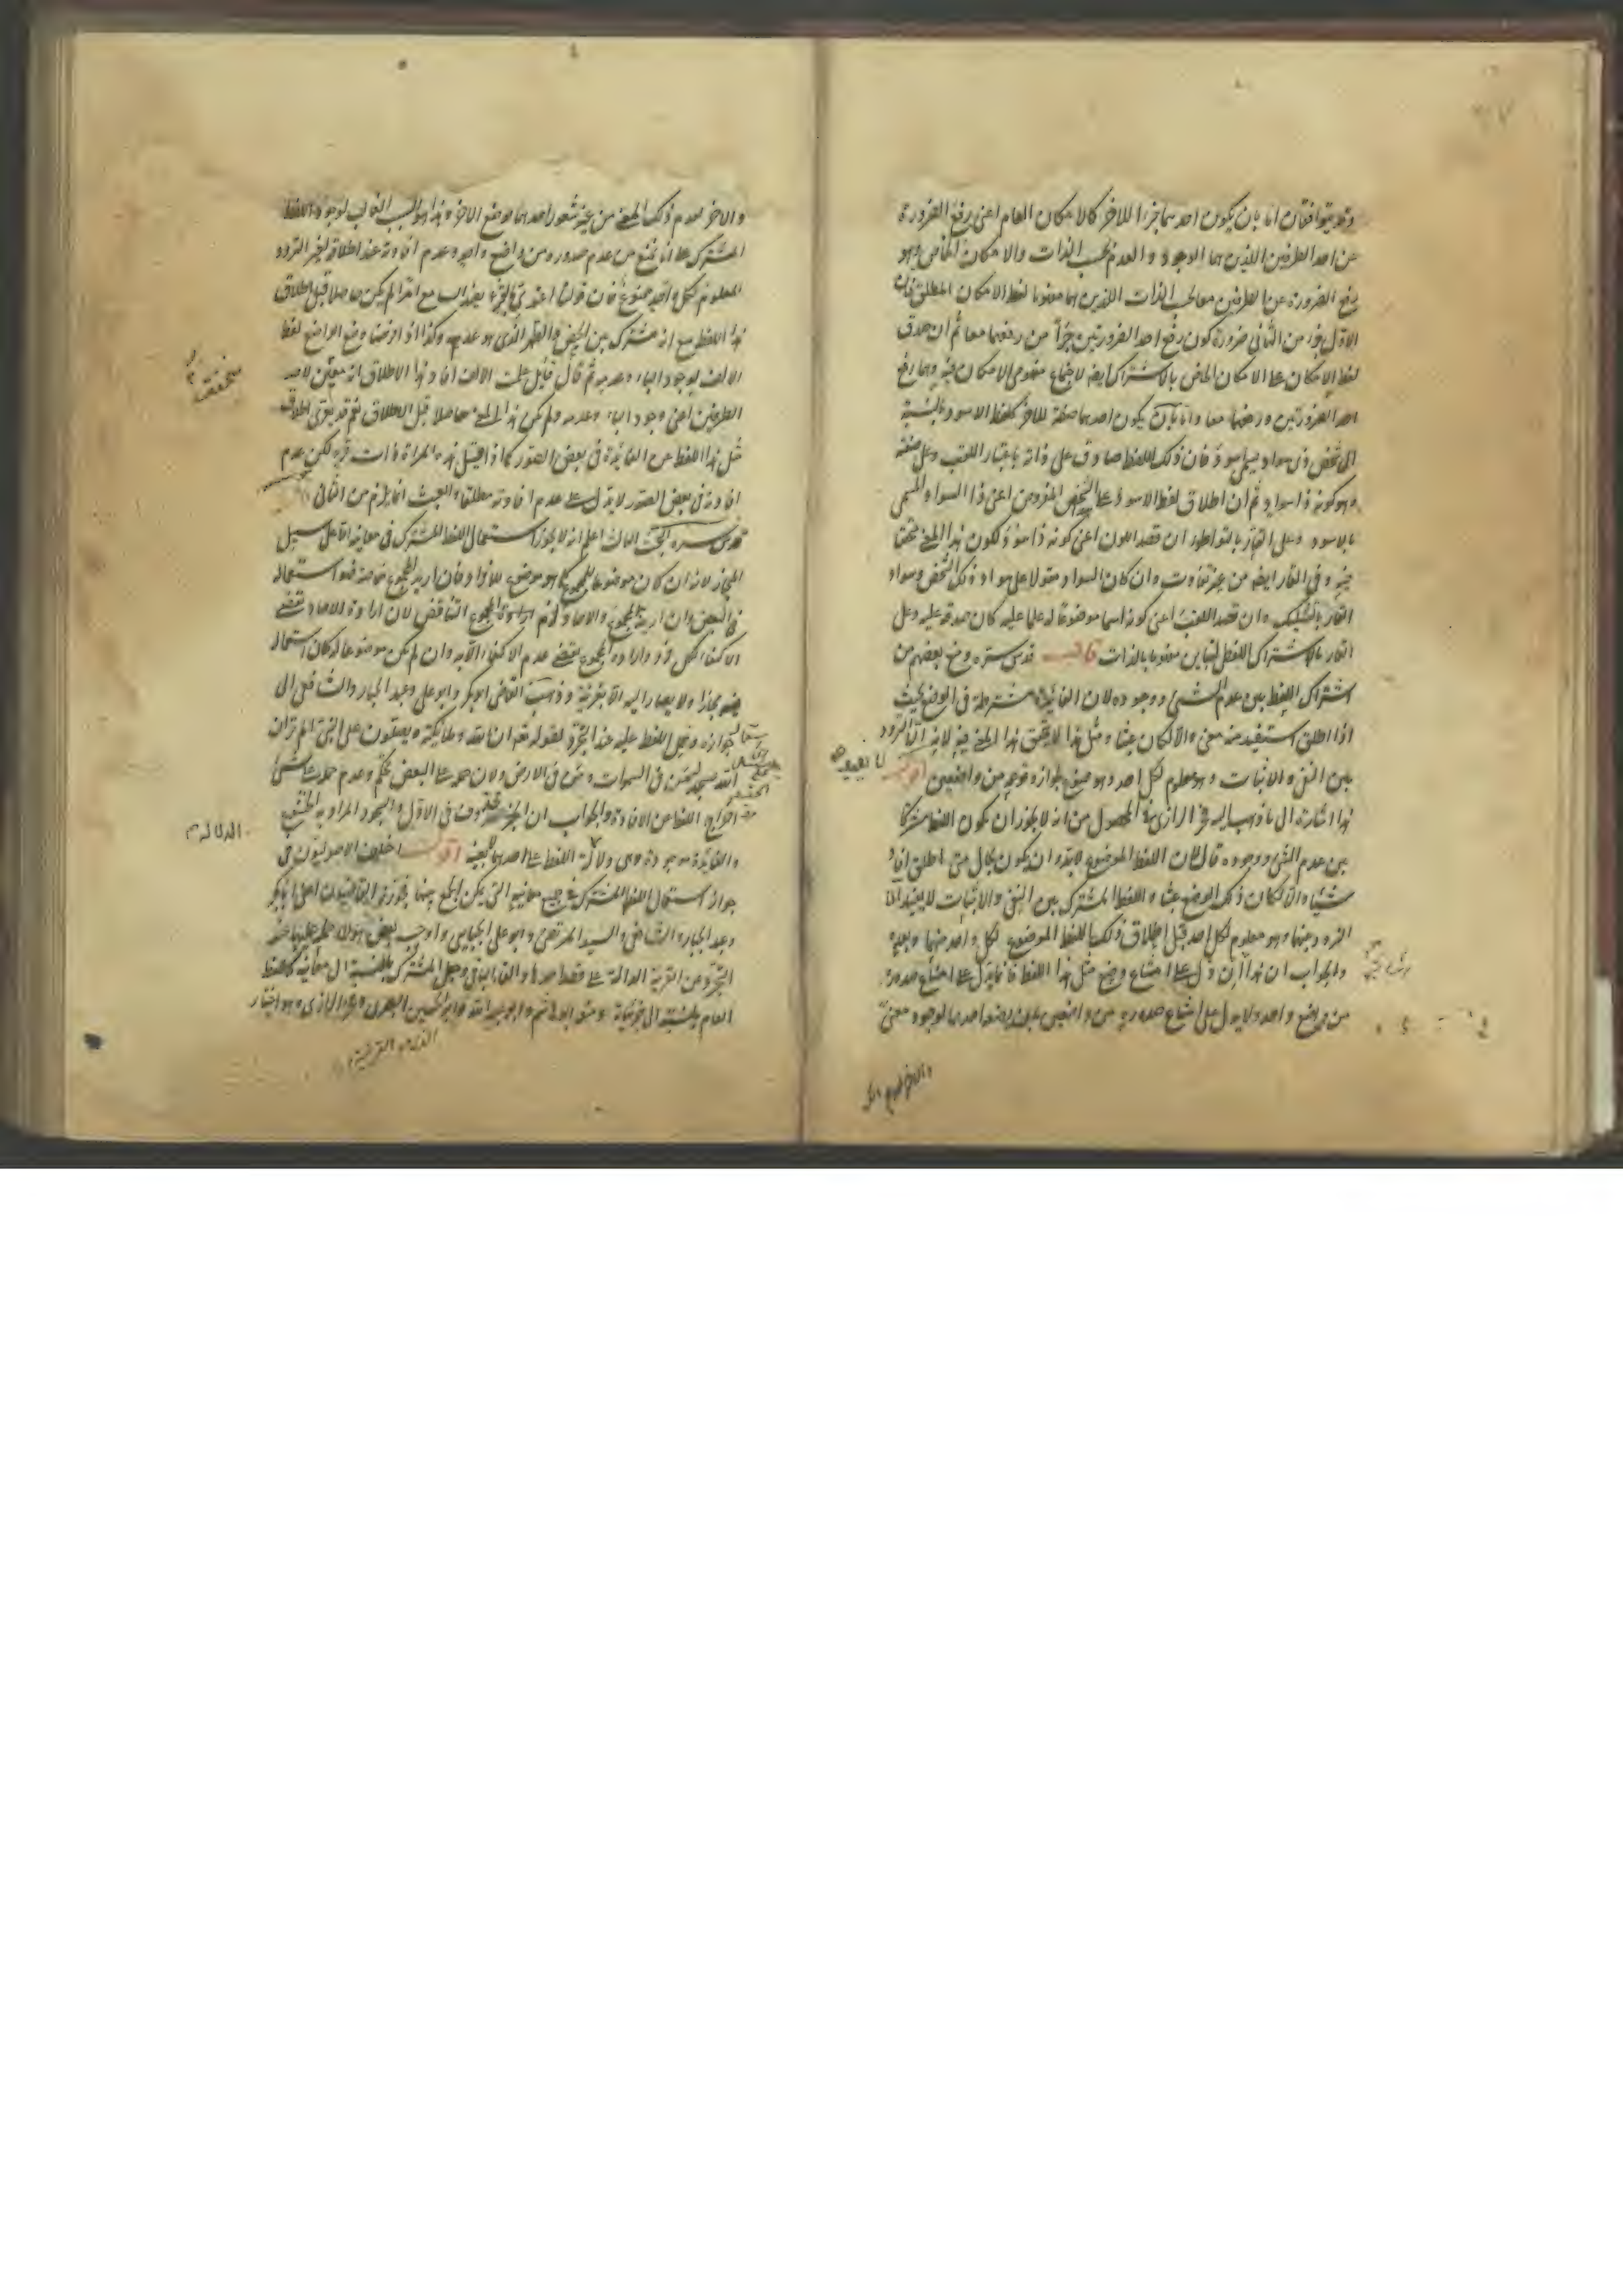 وقد يتوافقان اما بان يكون احدهما جزءا للاخر كالامكان العام اعنى رفع الضرورة
عن احد الطرفين اللذين هما الوجود والعدم بحسب الذات والامكان الخاص وهو
رفع الضرورة عن الطرفين معا بحسب الذات اللذين هما مفهوما لفظ الامكان المطلق فان
الاول جزء من الثانى ضرورة كون رفع احد الضرورتين جزأ من رفعهما معا ثم ان صدق
لفظ الامكان على الامكان الخاص بالاشتراك ايضا لاجتماع مفهومى الامكان فيه وهما رفع
احد الضرورتين ورفعهما معا واما بان يكون احدهما صفة للاخر كلفظ الاسود بالنسبة
الى شخص ذى سواد يسمى باسود فان ذلك اللفظ صادق على ذاته باعتبار اللقب وعلى صفته
وهو كونه ذا سواد ثم ان اطلاق لفظ الاسود على الشخص المفروض اعنى ذا السواد المسمى
بالاسود وعلى القار بالتواطؤ ان قصد اللون اعنى كونه ذا سواد لكون هذا المعنى متحققا
فيه وفى القار ايضا من غير تفاوت وان كان السواد مقولا على سواد ذلك الشخص وسواد
القار بالتشكيك وان قصد اللقب اعنى كونه اسما موضوعا له علما عليه كان صدقه عليه وعلى
القار بالاشتراك اللفظى لتباين مفهوميهما بالذات قال قدس سره ومنع بعضهم من
اشتراك اللفظ بين عدم الشىء ووجوده لان الفائدة مشترطة فى الوضع بحيث
اذا اطلق استفيد منه معنى والا لكان عبثا ومثل هذا لا يتحقق هذا المعنى فيه لانه الا التردد
لا يفيد
بين النفى والاثبات وهو معلوم لكل احد وهو ضعيف لجوازه من واضعين اقول
هذا اشارة الى ما ذهب اليه فخر الرازى فى المحصول من انه لا يجوز ان يكون اللفظ مشتركا
بين عدم الشىء ووجوده قال لان اللفظ الموضوع لابد وان يكون بحال متى اطلق افاد
شيئا والا لكان ذلك الوضع عبثا واللفظ المشترك بين النفى والاثبات لا يفيد الا
التردد بينهما وهو معلوم لكل احد قبل اطلاق ذلك اللفظ الموضوع لكل واحد منهما وبعده
والجواب ان هذا ان دل على امتناع وضع مثل هذا اللفظ فانما يدل على امتناع صدوره
من واضع واحد ولا يدل على امتناع صدوره من واضعين بان يضع احدهما لوجود معنى
والاخر لعدم ذلك
والاخر لعدم ذلك المعنى من غير شعور احدهما بوضع الاخر وهذا هو السبب الغالب لوجود اللفظ
المشترك على انا نمنع من عدم صدوره من واضع واحد وعدم افادته عند اطلاقه لغير التردد
المعلوم لكل واحد ممنوع فان قولنا اعتدى بالقرء يفيد السامع امرا لم يكن حاصلا قبل اطلاق
هذا اللفظ مع انه مشترك بين الحيض والطهر الذى هو عدمه وكذا اذا فرضنا وضع الواضع لفظ
الالف لوجود الباء وعدمه ثم قال قائل الالف افاد هذا الاطلاق لاحد
الطرفين اعنى وجود الباء وعدمه ولم يكن هذا المعنى حاصلا قبل الاطلاق نعم قد يعرى اطلاق
مثل هذا اللفظ من الفائدة فى بعض الصور كما اذا قيل هذه المراة ذات قرء لكن عدم
افادته فى بعض الصور لا يدل على عدم افادته مطلقا والعبث انما يلزم من الثانى قال
قدس سره البحث الثالث اعلم انه لا يجوز استعمال اللفظ المشترك فى معانيه الا على سبيل
المجاز لانه ان كان موضوعا للمجموع كما هو موضوع للافراد فان اريد المجموع خاصة فهو استعماله
فى البعض وان اريد المجموع والاحاد لزم التناقض لان ارادة الاحاد تقتضى
الاكتفاء بكل فرد وارادة المجموع تقتضى عدم الاكتفاء الا به وان لم يكن موضوعا له كان استعماله
فيه مجازا ولا يصار اليه الا بقرينة وذهب القاضى ابو بكر وابو على وعبد الجبار والشافعى الى
جوازه وحمل اللفظ عليه عند التجرد لقوله تعالى ان الله وملائكته يصلون على النبى الم تر ان
الله يسجد له من فى السموات ومن فى الارض ولان حمله على البعض تحكم وعدم حمله على شىء
اخراج اللفظ عن الافادة والجواب ان الخبر محذوف فى الاول والسجود المراد به الخشوع
والفائدة موجودة وهى دلالة اللفظ على احدهما لا بعينه اقول اختلف الاصوليون فى
جواز استعمال اللفظ المشترك فى جميع معانيه التى يمكن الجمع بينها فجوزه القاضيان اعنى ابا بكر
وعبد الجبار والشافعى والسيد المرتضى وابو على الجبائى واوجب بعض هؤلاء حمله عليها عند
التجرد عن القرينة الدالة على قصد احدها والغاء الباقى وجعل المشترك بالنسبة الى معانيه كاللفظ
العام بالنسبة الى جزئياته ومنعه ابو هاشم وابو عبد الله وابو الحسين البصرى وفخر الرازى وهو اختيار
الدلالة